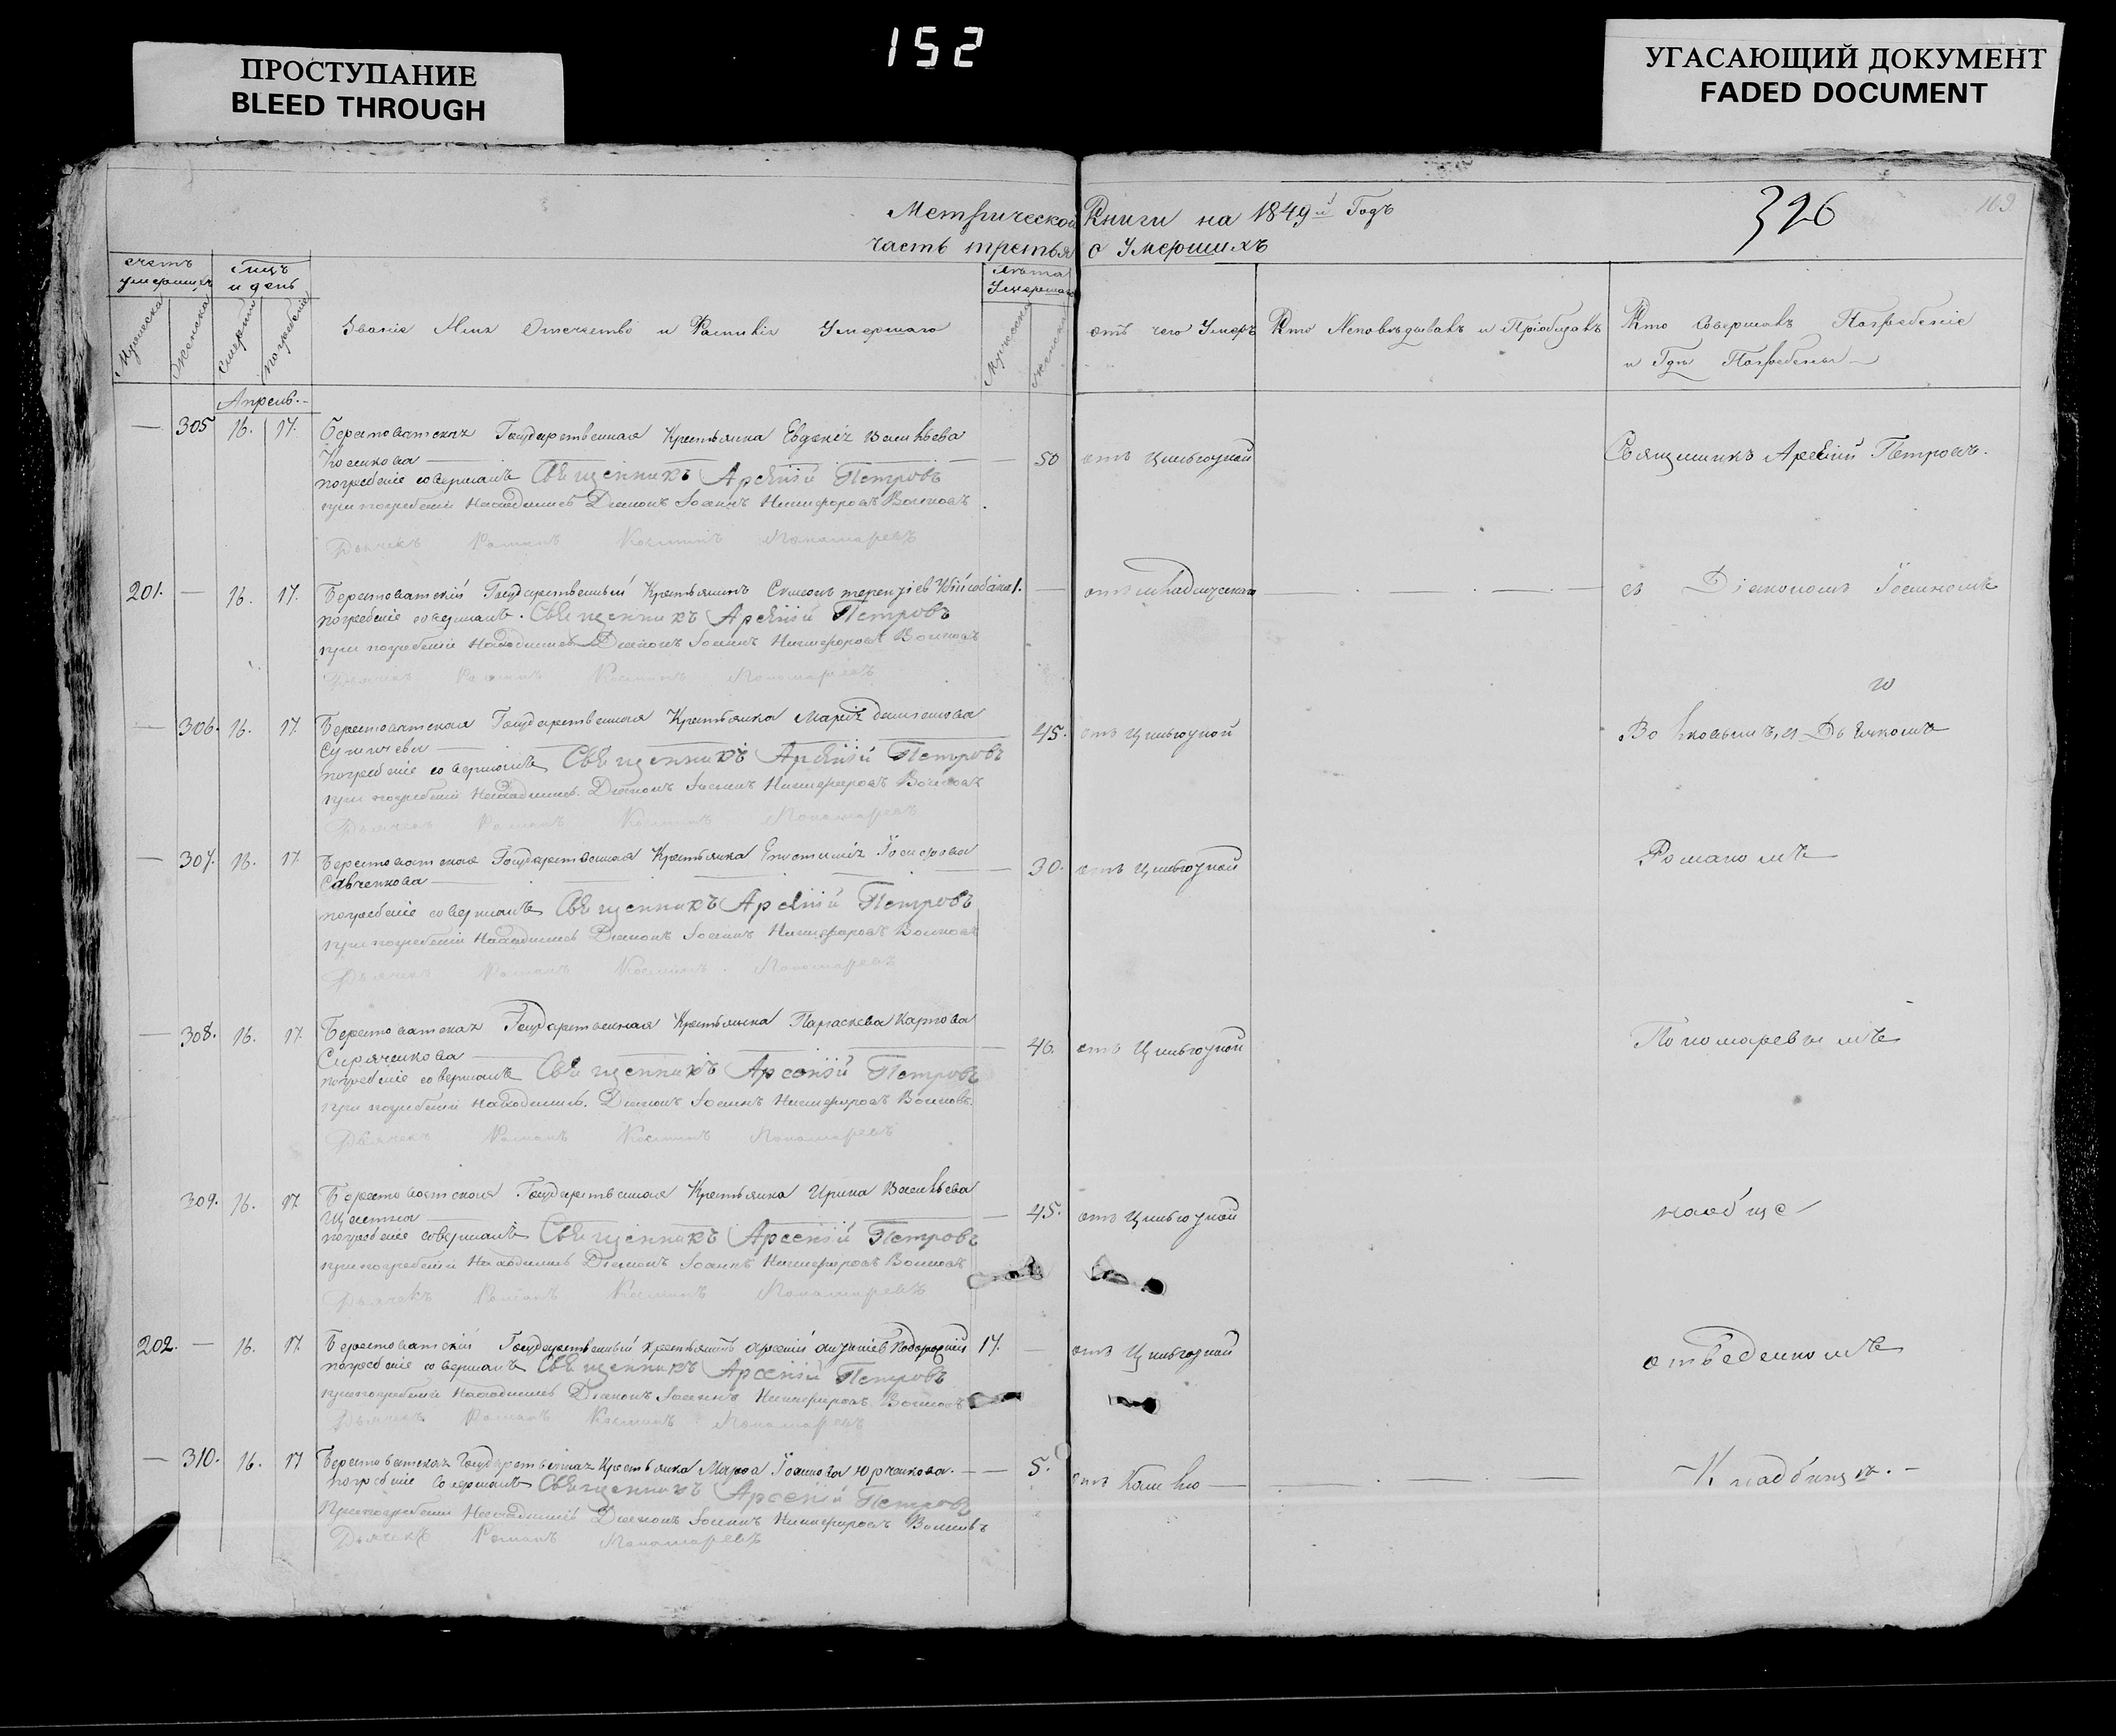 152
ПРОСТУПАНИЕ
BLEED THROUGH
УГАСАЮЩИЙ ДОКУМЕНТ
FADED DOCUMENT
Метрической Книги на 1849й Годъ
326
часть третья о Умершихъ
счетъ умершихъ
мцъ и день
Лѣта Умершаго
Мужеска
Женска
Смерти
погребенія
Званіе Имя Отечество и Фамилія Умершаго
Мужеска
Женска
отъ чего Умеръ
Кто Исповѣдывалъ и Пріобщалъ
Кто Совершалъ Погребеніе
и Гдѣ Погребены
Апрель.
— 305 16. 17. Берестоватская Государственная Крестьянка Евдокія Васильева
— 50 отъ Цынготной
Священникъ Арсеній Петровъ.
погребеніе совершалъ Священникъ Арсеній Петровъ
при погребеніи находились Діаконъ Іоаннъ Никифоровъ Волковъ.
Дьячекъ Романъ Косминъ Пономаревъ
201. — 16. 17. Берестоватскій Государственный Крестьянинъ Симеонъ терентіевъ 1. —
съ Діакономъ Іоанномъ
погребеніе совершалъ. Священникъ Арсеній Петровъ
при погребеніи находились Діаконъ Іоаннъ Никифоровъ Волковъ
Дьячекъ Романъ Косминъ Пономаревъ
— 306. 16. 17. Берестоватская Государственная Крестьянка Марія
45. отъ Цынготной
Волковымъ, и Дьячкомъ
погребеніе совершалъ Священникъ Арсеній Петровъ
при погребеніи находились Діаконъ Іоаннъ Никифоровъ Волковъ
Дьячекъ Романъ Косминъ Пономаревъ
— 307. 16. 17. Берестоватская Государственная Крестьянка Епистимія Іосифова
Савченкова — 30. отъ Цынготной
Романомъ
погребеніе совершалъ Священникъ Арсеній Петровъ
при погребеніи находились Діаконъ Іоаннъ Никифоровъ Волковъ
Дьячекъ Романъ Косминъ Пономаревъ
— 308. 16. 17. Берестоватская Государственная Крестьянка Параскева Карпова
— 46. отъ Цынготной
Пономаревымъ
погребеніе совершалъ Священникъ Арсеній Петровъ
при погребеніи находились. Діаконъ Іоаннъ Никифоровъ Волковъ.
Дьячекъ Романъ Косминъ Пономаревъ
309. 16. 17. Берестоватская Государственная Крестьянка Ирина Васильева
— 45. отъ Цынготной
наобще
погребеніе совершалъ Священникъ Арсеній Петровъ
при погребеніи находились Діаконъ Іоаннъ Никифоровъ Волковъ
Дьячекъ Романъ Косминъ Пономаревъ
202. — 16. 17. Берестоватскій Государственный крестьянинъ 17. — отъ Цынготной
отведенномъ
погребеніе совершалъ Священникъ Арсеній Петровъ
при погребеніи находились Діаконъ Іоаннъ Никифоровъ Волковъ
Дьячекъ Романъ Косминъ Пономаревъ
— 310. 16. 17 Берестоватская Государственная Крестьянка Марфа Іоаннова Юрченкова. — — 5. отъ
Кладбищѣ. —
погребеніе совершалъ Священникъ Арсеній Петровъ
При погребеніи находились Діаконъ Іоаннъ Никифоровъ Волковъ
Дьячекъ Романъ Пономаревъ